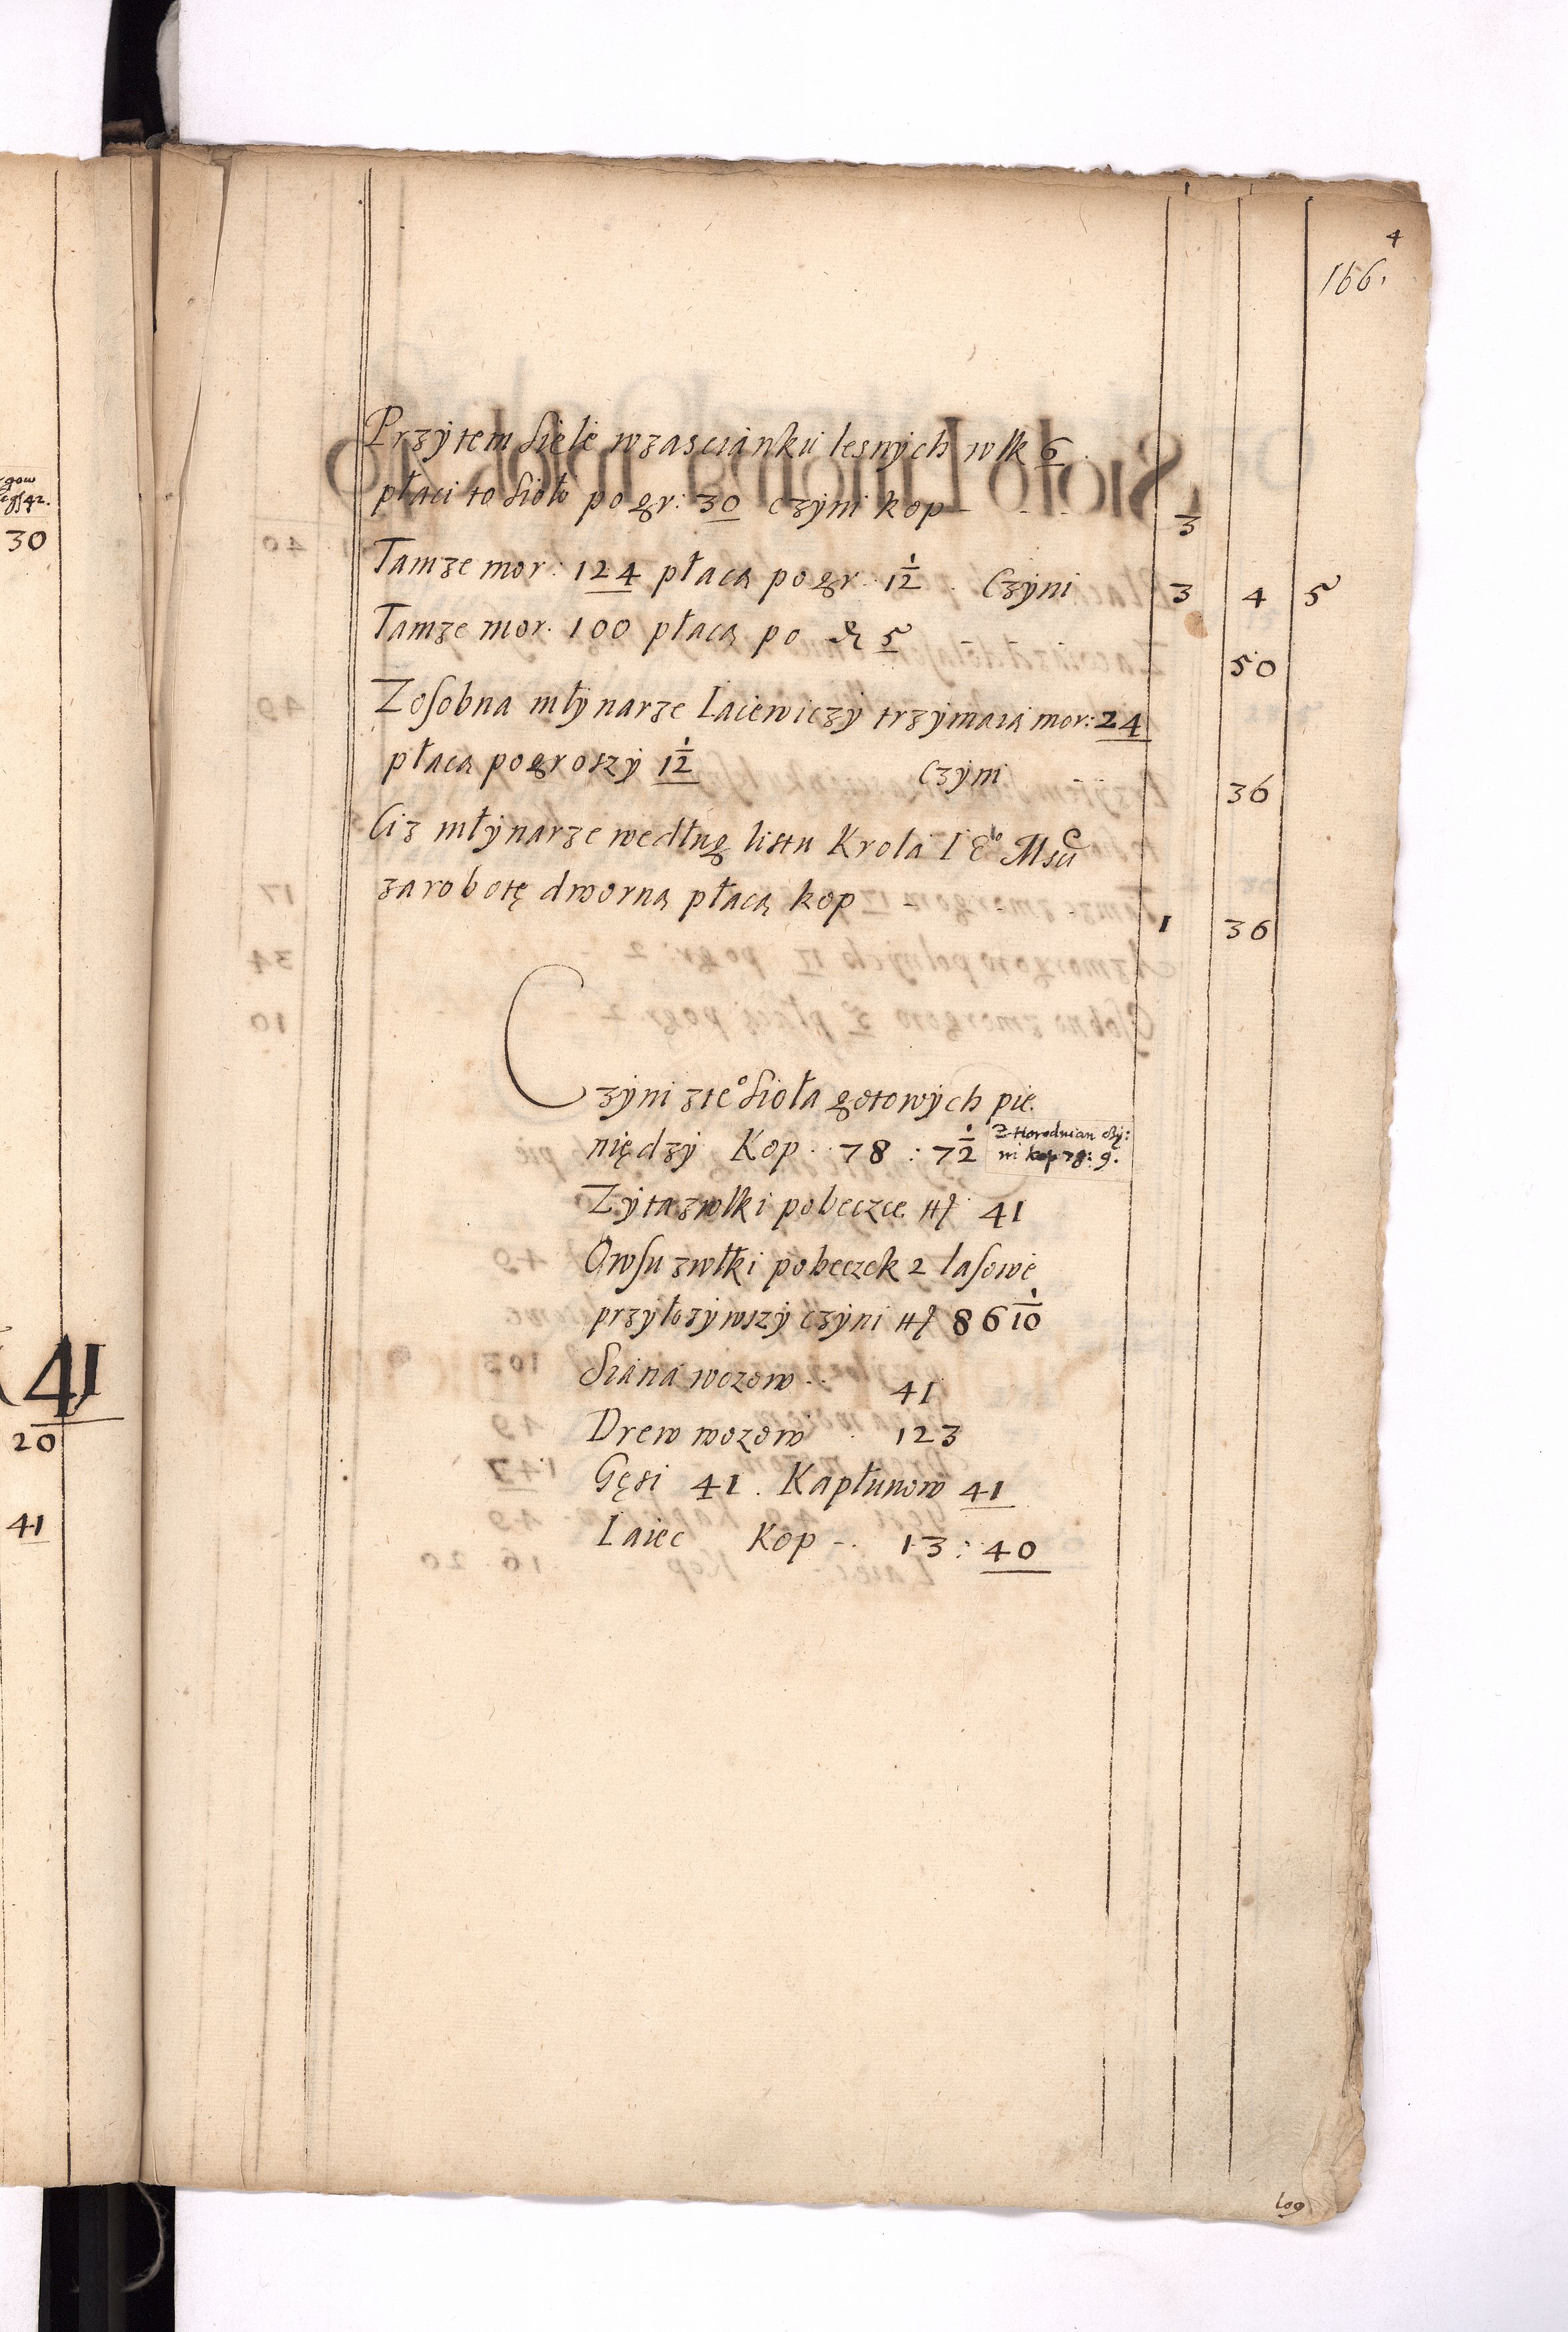 4
166.
Przy tem siele w zascianku lesnych wlk 6
płaci to sioło po gr: 30 czyni kop - - - 3
Tamze mor: 124 płacą po gr: 1½ . Czyni 3 4 5
Tamze mor. 100 płacą po 5 50
Zosobna młynarze Iaiewiczy trzymaią mor: 24
płacą po groszy 1½ czyni 36
Ciz młynarze według listu Krola IE° Msci
za robotę dworną płacą kop 1 36
Czyni z te° sioła gotowych pie.
niędzy Kop .. 78 : 7½
Z Horodnian czy:
ni kop 78: 9.
Zyta z wlki po beczce 41
Owsu z włki po beczek 2 lasowe
przyłozywszy czyni 86 1/10
Siana wozow .. 41
Drew wozow . 123
Gęsi 41 . Kapłunow 41
Iaiec Kop -. 13 : 40
109
gow
42.
30
41
20
41